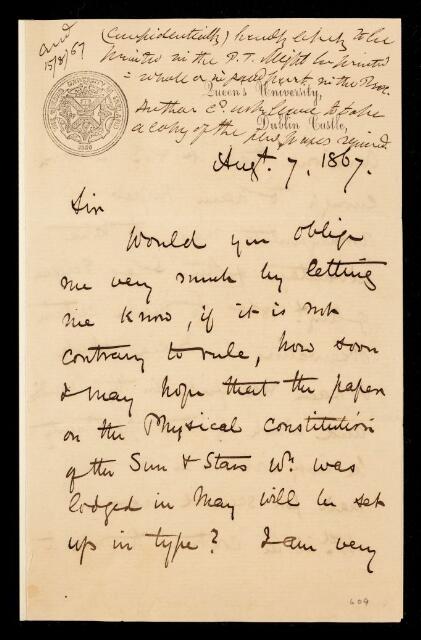 and
15/8/67
(Confidentially) hardly likely to be
printed in the P.T. Might be printed
= whole or in part in the Proc.
Queen's University,
Author cd. with leave to take
Dublin Castle,
a copy of the few pages required
Augt. 7, 1867.
Sir
Would you oblige
me very much by letting
me know, if it is not
contrary to rule, how soon
I may hope that the paper
on the Physical Constitution
of the Sun & Stars wh. was
lodged in May will be set
up in type? I am very
609